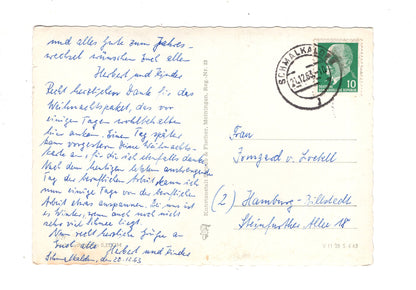 und alles Gute zum Jahres-
wechsel wünschen Euch allen
Herbert und Kinder
Recht herzlichen Dank für das
Weihnachtspaket, das vor
einigen Tagen wohlbehalten
hier ankam. Einen Tag später
kam vorgestern Deine Weihnachts-
karte an, für die ich ebenfalls danke.
Nach dem heutigen letzten anstrengenden
Tag der beruflichen Arbeit kann ich
nun einige Tage von der beruflichen
Arbeit etwas ausspannen. Bei uns ist
es Winter, wenn auch noch nicht
sehr viel Schnee liegt.
Nun recht herzliche Grüße an
Euch alle Herbert und Kinder
Schmalkalden, den 20.12.63
Meiningen, Reg.-Nr.
SCHMALKALDEN
21.12.63
10
Frau
Irmgard v.
(2) Hamburg-Billstedt
Steinfurther Allee